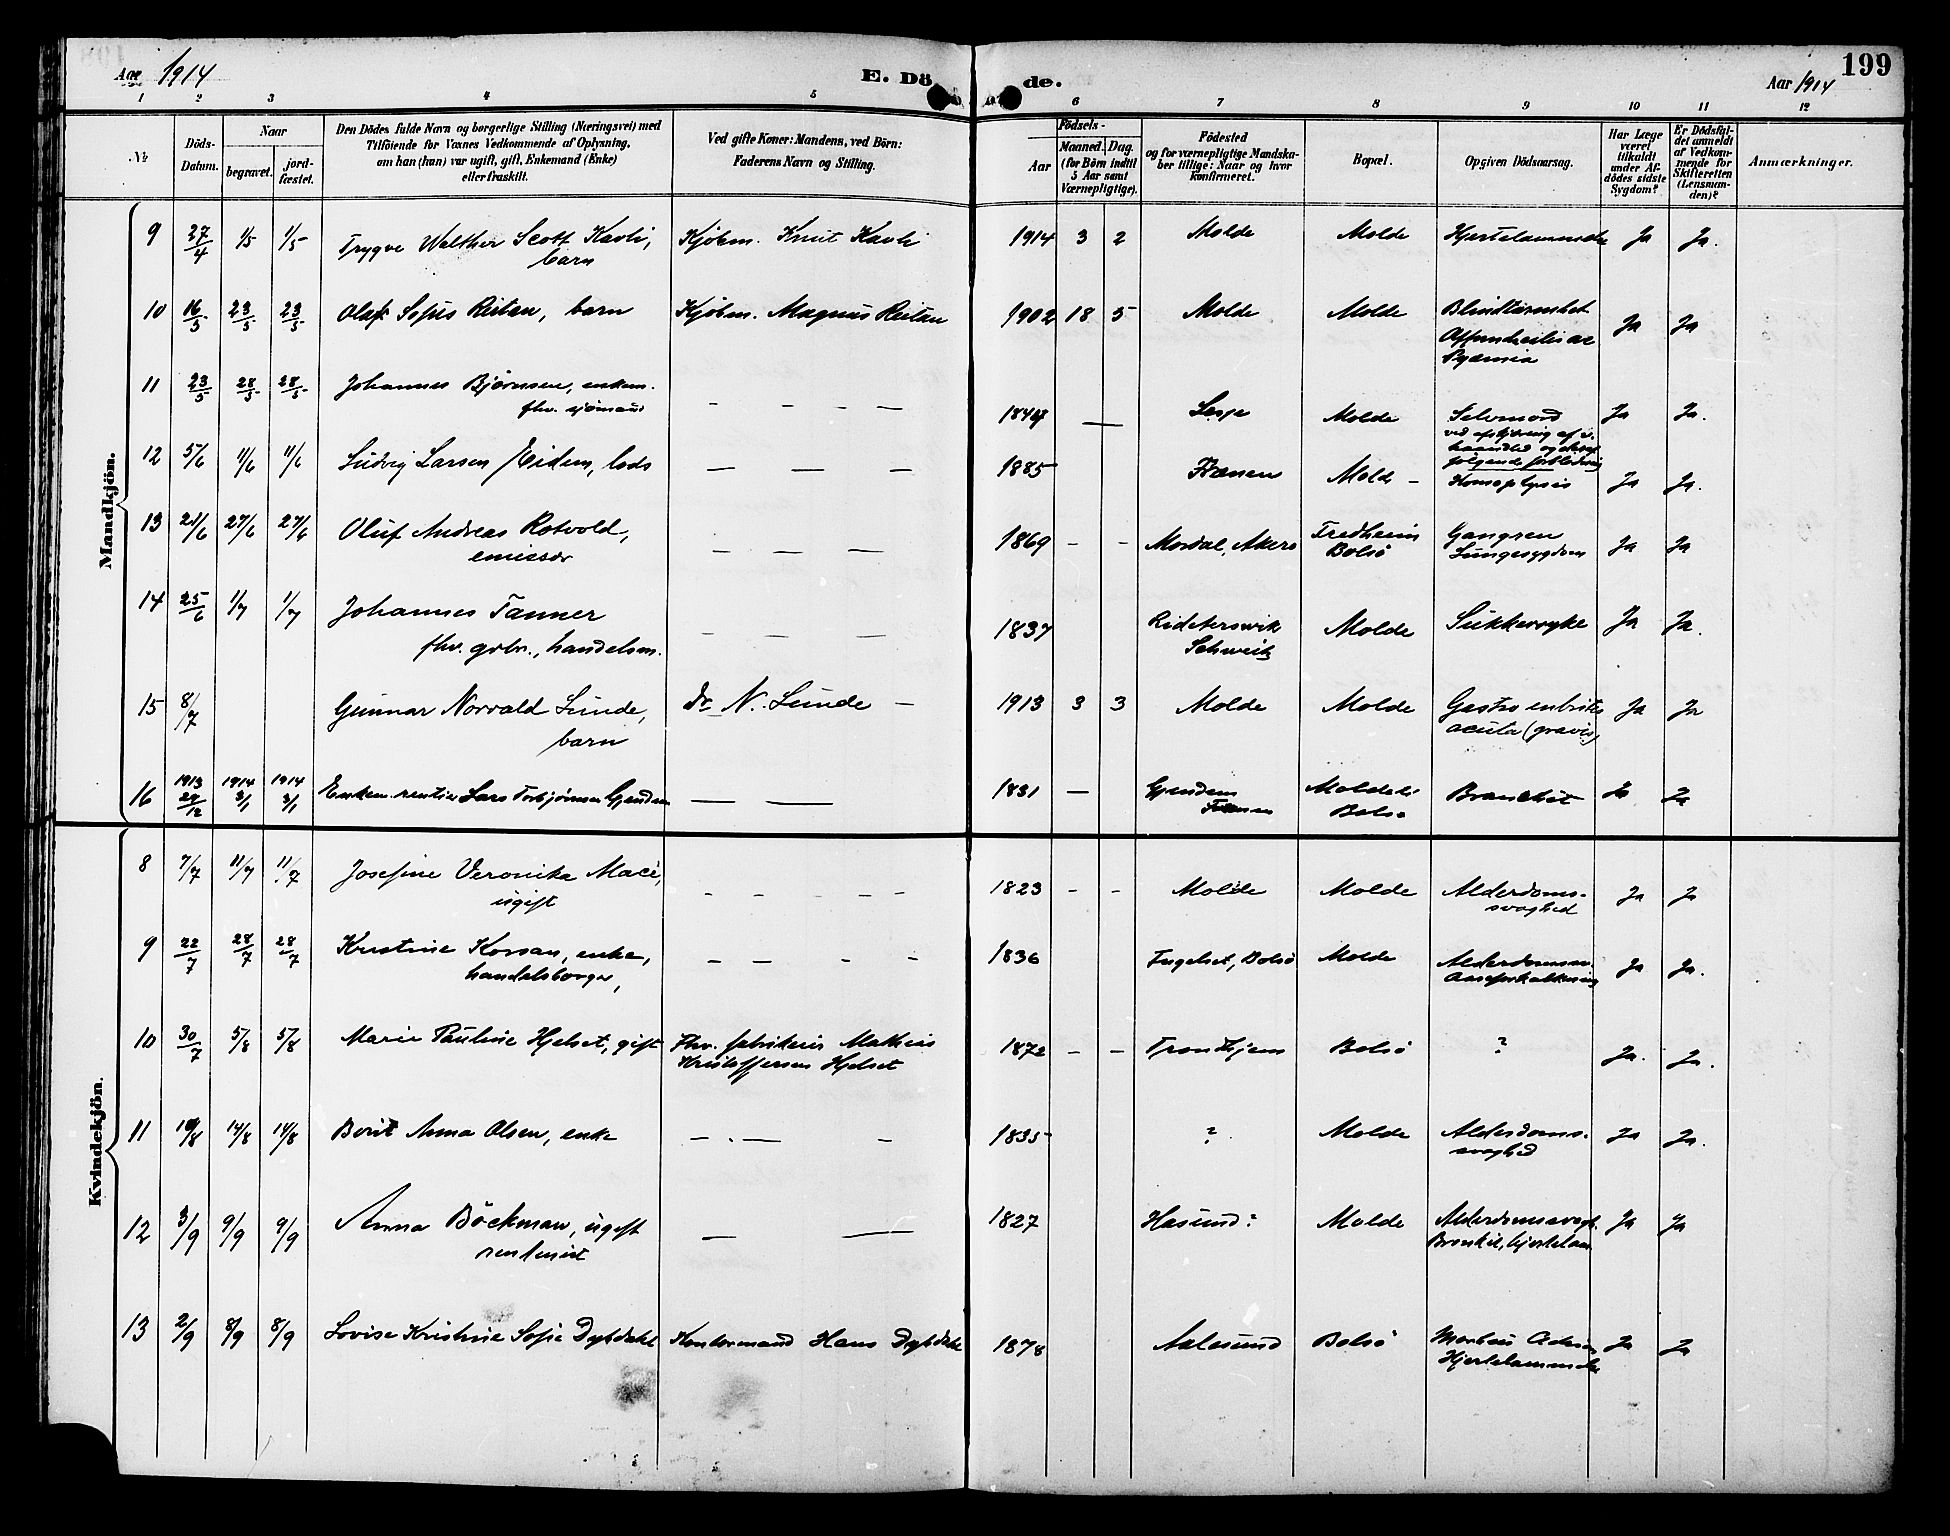 Aar 1914
E. Dö de.
Aar 1914
199
1 2 3 4 5 6 7 8 9 10 11 12
No
Döds-Datum.
Naar
begravet.
jord-fæstet.
Den Dödes fulde Navn og borgerlige Stilling (Næringsvei) med
Tilföiende for Voxnes Vedkommende af Oplysning,
om han (hun) var ugift, gift, Enkemand (Enke)
eller fraskilt.
Ved gifte Koner: Mandens, ved Börn:
Faderens Navn og Stilling.
Födsels-
Aar
Maaned. Dag.
(for Börn indtil
5 Aar samt
Værnepligtige).
Födested
og for værnepligtige Mandska-
ber tillige: Naar og hvor
konfirmeret.
Bopæl.
Opgiven Dödsaarsag.
Har Læge
været
tilkaldt
under Af-
dödes sidste
Sygdom?
Er Dödsfal-
det anmeldt
af Vedkom-
mende for
Skifteretten
(Lensman-
den)?
Anmærkninger.
Mandkjön.
9 27/4 1/5 1/5 Trygve Walther Scott Kavli, Kjøbm. Knut Kavli 1914 3 2 Molde Molde Hjertelammelse Ja Ja.
barn
10 16/5 23/5 23/5 Olaf Sofus Reitan, barn Kjøbm. Magnus Reitan 1902 18 5 Molde Molde Blindtarmbet. Ja Ja
Pyæmia
11 23/5 28/5 28/5 Johannes Bjørnsen, enkem. — — — — 1844 — Lesje Molde Selvmord Ja Ja.
fhv. sjømand
ved
12 5/6 11/6 11/6 Ludvig Larsen Eidem, lods — — — 1885 Frænen Molde Hæmoptysis Ja Ja.
13 21/6 27/6 27/6 Oluf Andreas Rotvold, — — — 1869 - - Akers Fredheim Gangren Ja Ja
emissær Bolsø Lungesygdom
14 25/6 1/7 1/7 Johannes Tanner — — — 1837 Molde Sukkersyke Ja Ja.
fhv. grbr., handelsm. Schweitz
15 8/7 Gunnar Norvald Lunde, Dr N. Lunde — 1913 3 3 Molde Molde Gastro enterit Ja Ja
barn acuta (gravis)
16 1913 29/12 1914 3/1 1914 3/1 Enkem. rentier Lars Torbjørnsen Gjendem — — 1831 — Gjendem Bronchit Ja Ja
Frænen Bolsø
Kvindekjön.
8 7/7 11/7 11/7 Josefine Veronika Macé, - - - - - 1823 - - Molde Molde Alderdoms- Ja Ja
ugift svaghed
9 22/7 28/7 28/7 Kristine Korsan, enke, — — - - 1836 Fugelset, Bolsø Molde Ja Ja.
handelsborger, Aareforkalkning
10 30/7 5/8 5/8 Marie Pauline Hjelset, gift Fhv. fabrikeier Mathias 1872 - - Trondhjem Bolsø ? Ja. Ja.
Kristoffersen Hjelset
11 10/8 14/8 14/8 Borit Anna Olsen, enke — . — - 1835 ? Molde Alderdoms- Ja Ja.
svaghed
12 3/9 9/9 9/9 Anna Böckman, ugift — — 1827 Hasund? Molde Alderdomssvagh. Ja Ja
rentenist Bronkit, hjertelam.
13 2/9 8/9 8/9 Lovise Kristine Sofie Dybdahl Kontormand Hans Dybdahl 1878 Aalesund Bolsø Morbus Ja Ja
Hjertelammelse